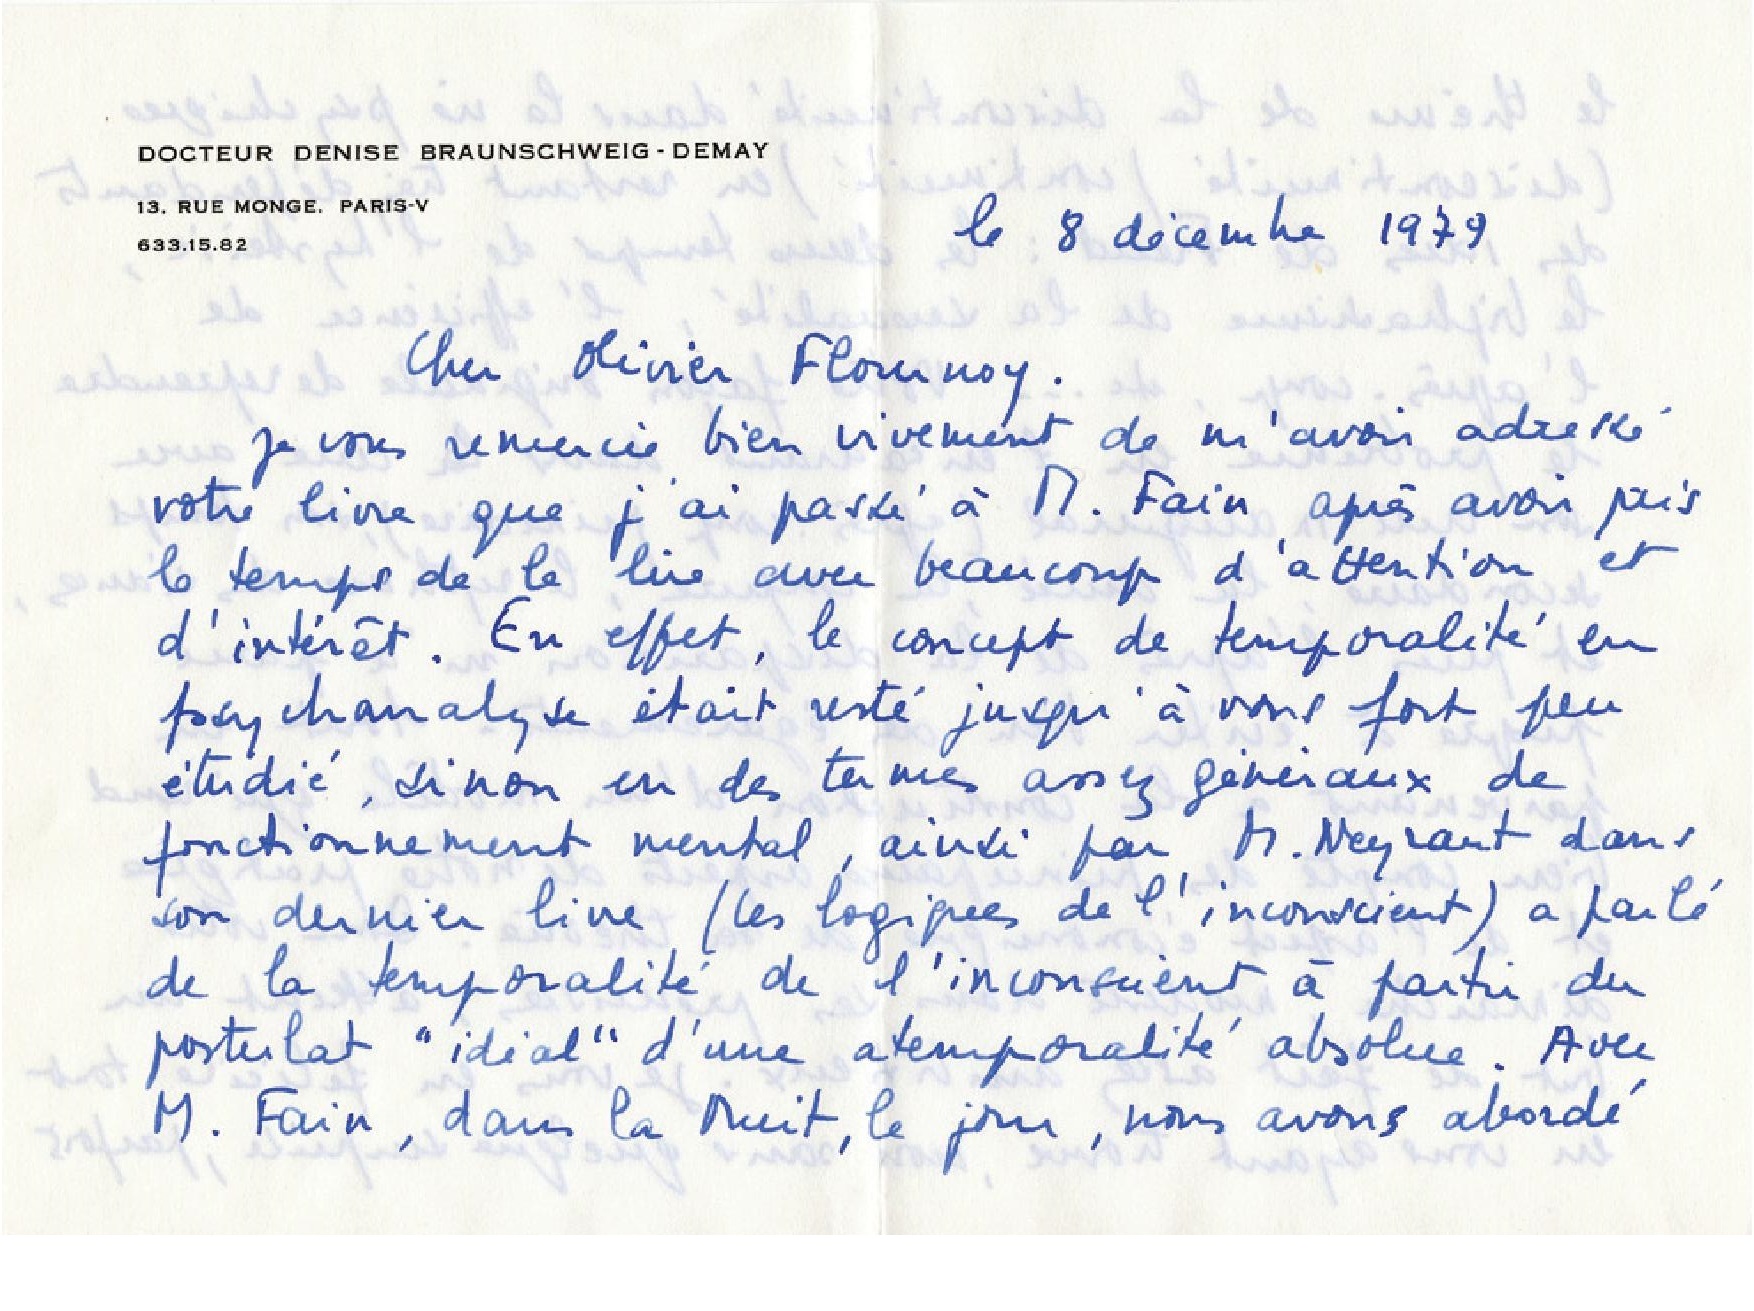 DOCTEUR DENISE BRAUNSCHWEIG - DEMAY
13, RUE MONGE, PARIS-V
633.15.82
le 8 décembre 1979
Cher Olivier Flournoy.
Je vous remercie bien vivement de m'avoir adressé
votre livre que j'ai passé à M. Fain après avoir pris
le temps de le lire avec beaucoup d'attention et
d'intérêt. En effet, le concept de temporalité en
psychanalyse était resté jusqu'à vous fort peu
étudié, sinon en des termes assez généraux de
fonctionnement mental, ainsi par M. Neyraut dans
son dernier livre (les logiques de l'inconscient) a parlé
de la temporalité de l'inconscient à partir du
postulat "idéal" d'une atemporalité absolue. Avec
M. Fain, dans la Nuit, le jour, nous avons abordé